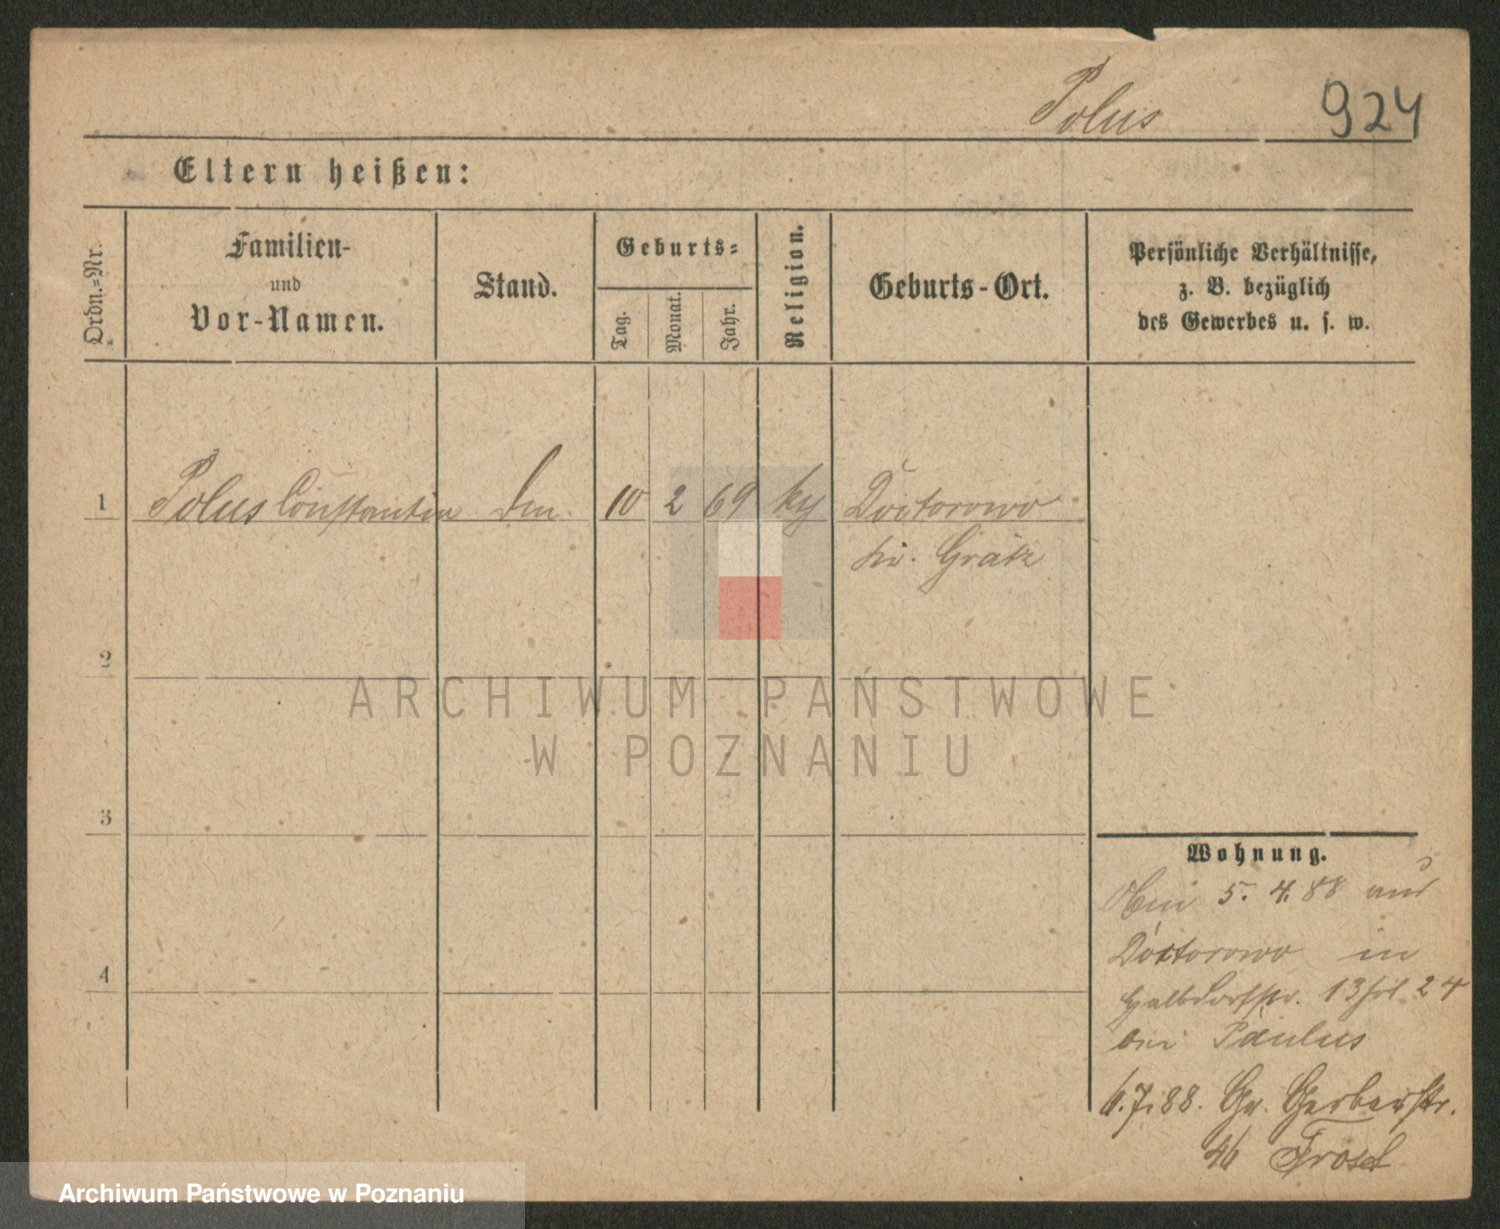 Polus 924
Eltern heißen:
Ordn.-Nr.
Familien-
und
Vor-Namen.
Stand.
Geburts-
Tag.
Monat.
Jahr.
Religion.
Geburts-Ort.
Persönliche Verhältnisse,
z. B. bezüglich
des Gewerbes u. s. w.
1 Polus Constantin 10 2 69 Doctorowo
Grätz
2
3
4
ARCHIWUM PAŃSTWOWE
W POZNANIU
Wohnung.
5. 4. 88 aus
Doctorowo in
Halbdorfstr. 13 24
bei Paulus
6.7.88. Gr. Gerberstr.
46
Archiwum Państwowe w Poznaniu